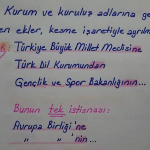 Kurum ve kuruluş adlarına ge
en ekler, kesme işaretiyle ayrılm
Türkiye Büyük Millet Meclisine
Türk Dil Kurumundan
Gençlik ve Spor Bakanlığının...
Bunun tek istisnası:
Avrupa Birliği'ne
" " 'nin...